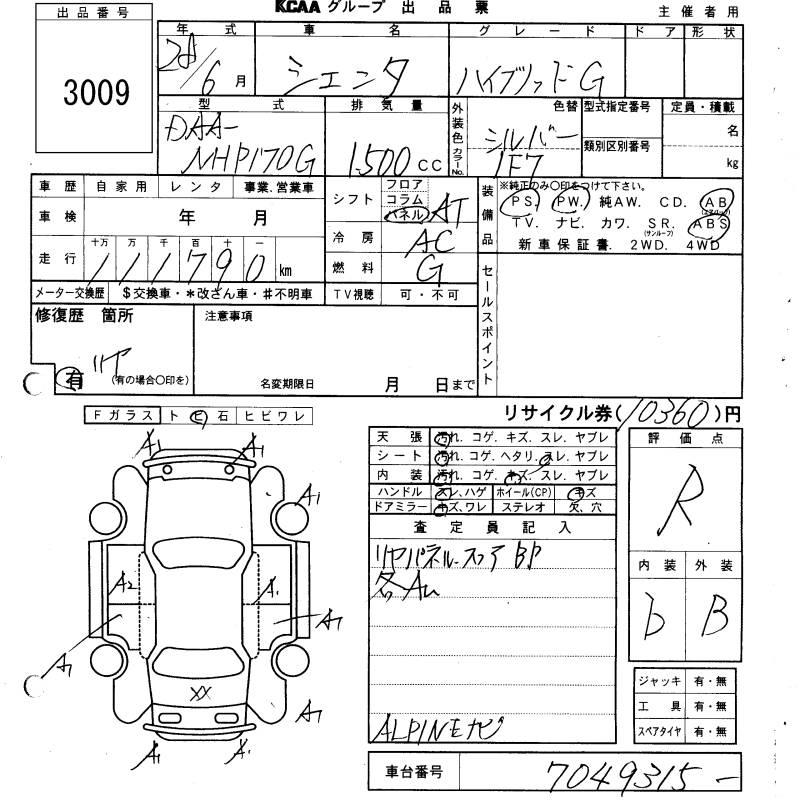 出品番号
3009
KCAA グループ 出品票 主催者用
年式 車名 グレード ドア 形状
28/6月 シエンタ ハイブリッドG
型式 排気量 外装色 カラーNo. 色替 型式指定番号 定員・積載
DAA-
NHP170G 1500cc シルバー 1F7 類別区別番号 名
kg
車歴 自家用 レンタ 事業.営業車
車検 年 月
走行 十万 万 千 百 十 一
111790 km
メーター交換歴 $交換車・*改ざん車・#不明車
シフト フロア コラム パネル AT
冷房 AC
燃料 G
TV視聴 可・不可
装備品 ※純正のみ○印をつけて下さい。
PS. PW. 純AW. CD. AB(エアバッグ)
TV. ナビ. カワ. SR.(サンルーフ) ABS
新車保証書. 2WD. 4WD
セールスポイント
修復歴 箇所 注意事項
有 リヤ (有の場合○印を) 名変期限日 月 日まで
Fガラス ト ビ 石 ヒビワレ
リサイクル券(10360)円
天張 汚れ. コゲ. キズ. スレ. ヤブレ
シート 汚れ. コゲ. ヘタリ. スレ. ヤブレ
内装 汚れ. コゲ. キズ. スレ. ヤブレ
ハンドル スレ、ハゲ ホイール(CP) キズ
ドアミラー キズ、ワレ ステレオ 欠、穴
査定員記入
リヤパネル・フロア BP
各A
ALPINEナビ
評価点
R
内装 外装
D B
ジャッキ 有・無
工具 有・無
スペアタイヤ 有・無
車台番号 7049315-
A1 A1
A1
A2 A1
A1 A1
XX
A1
A1 A1